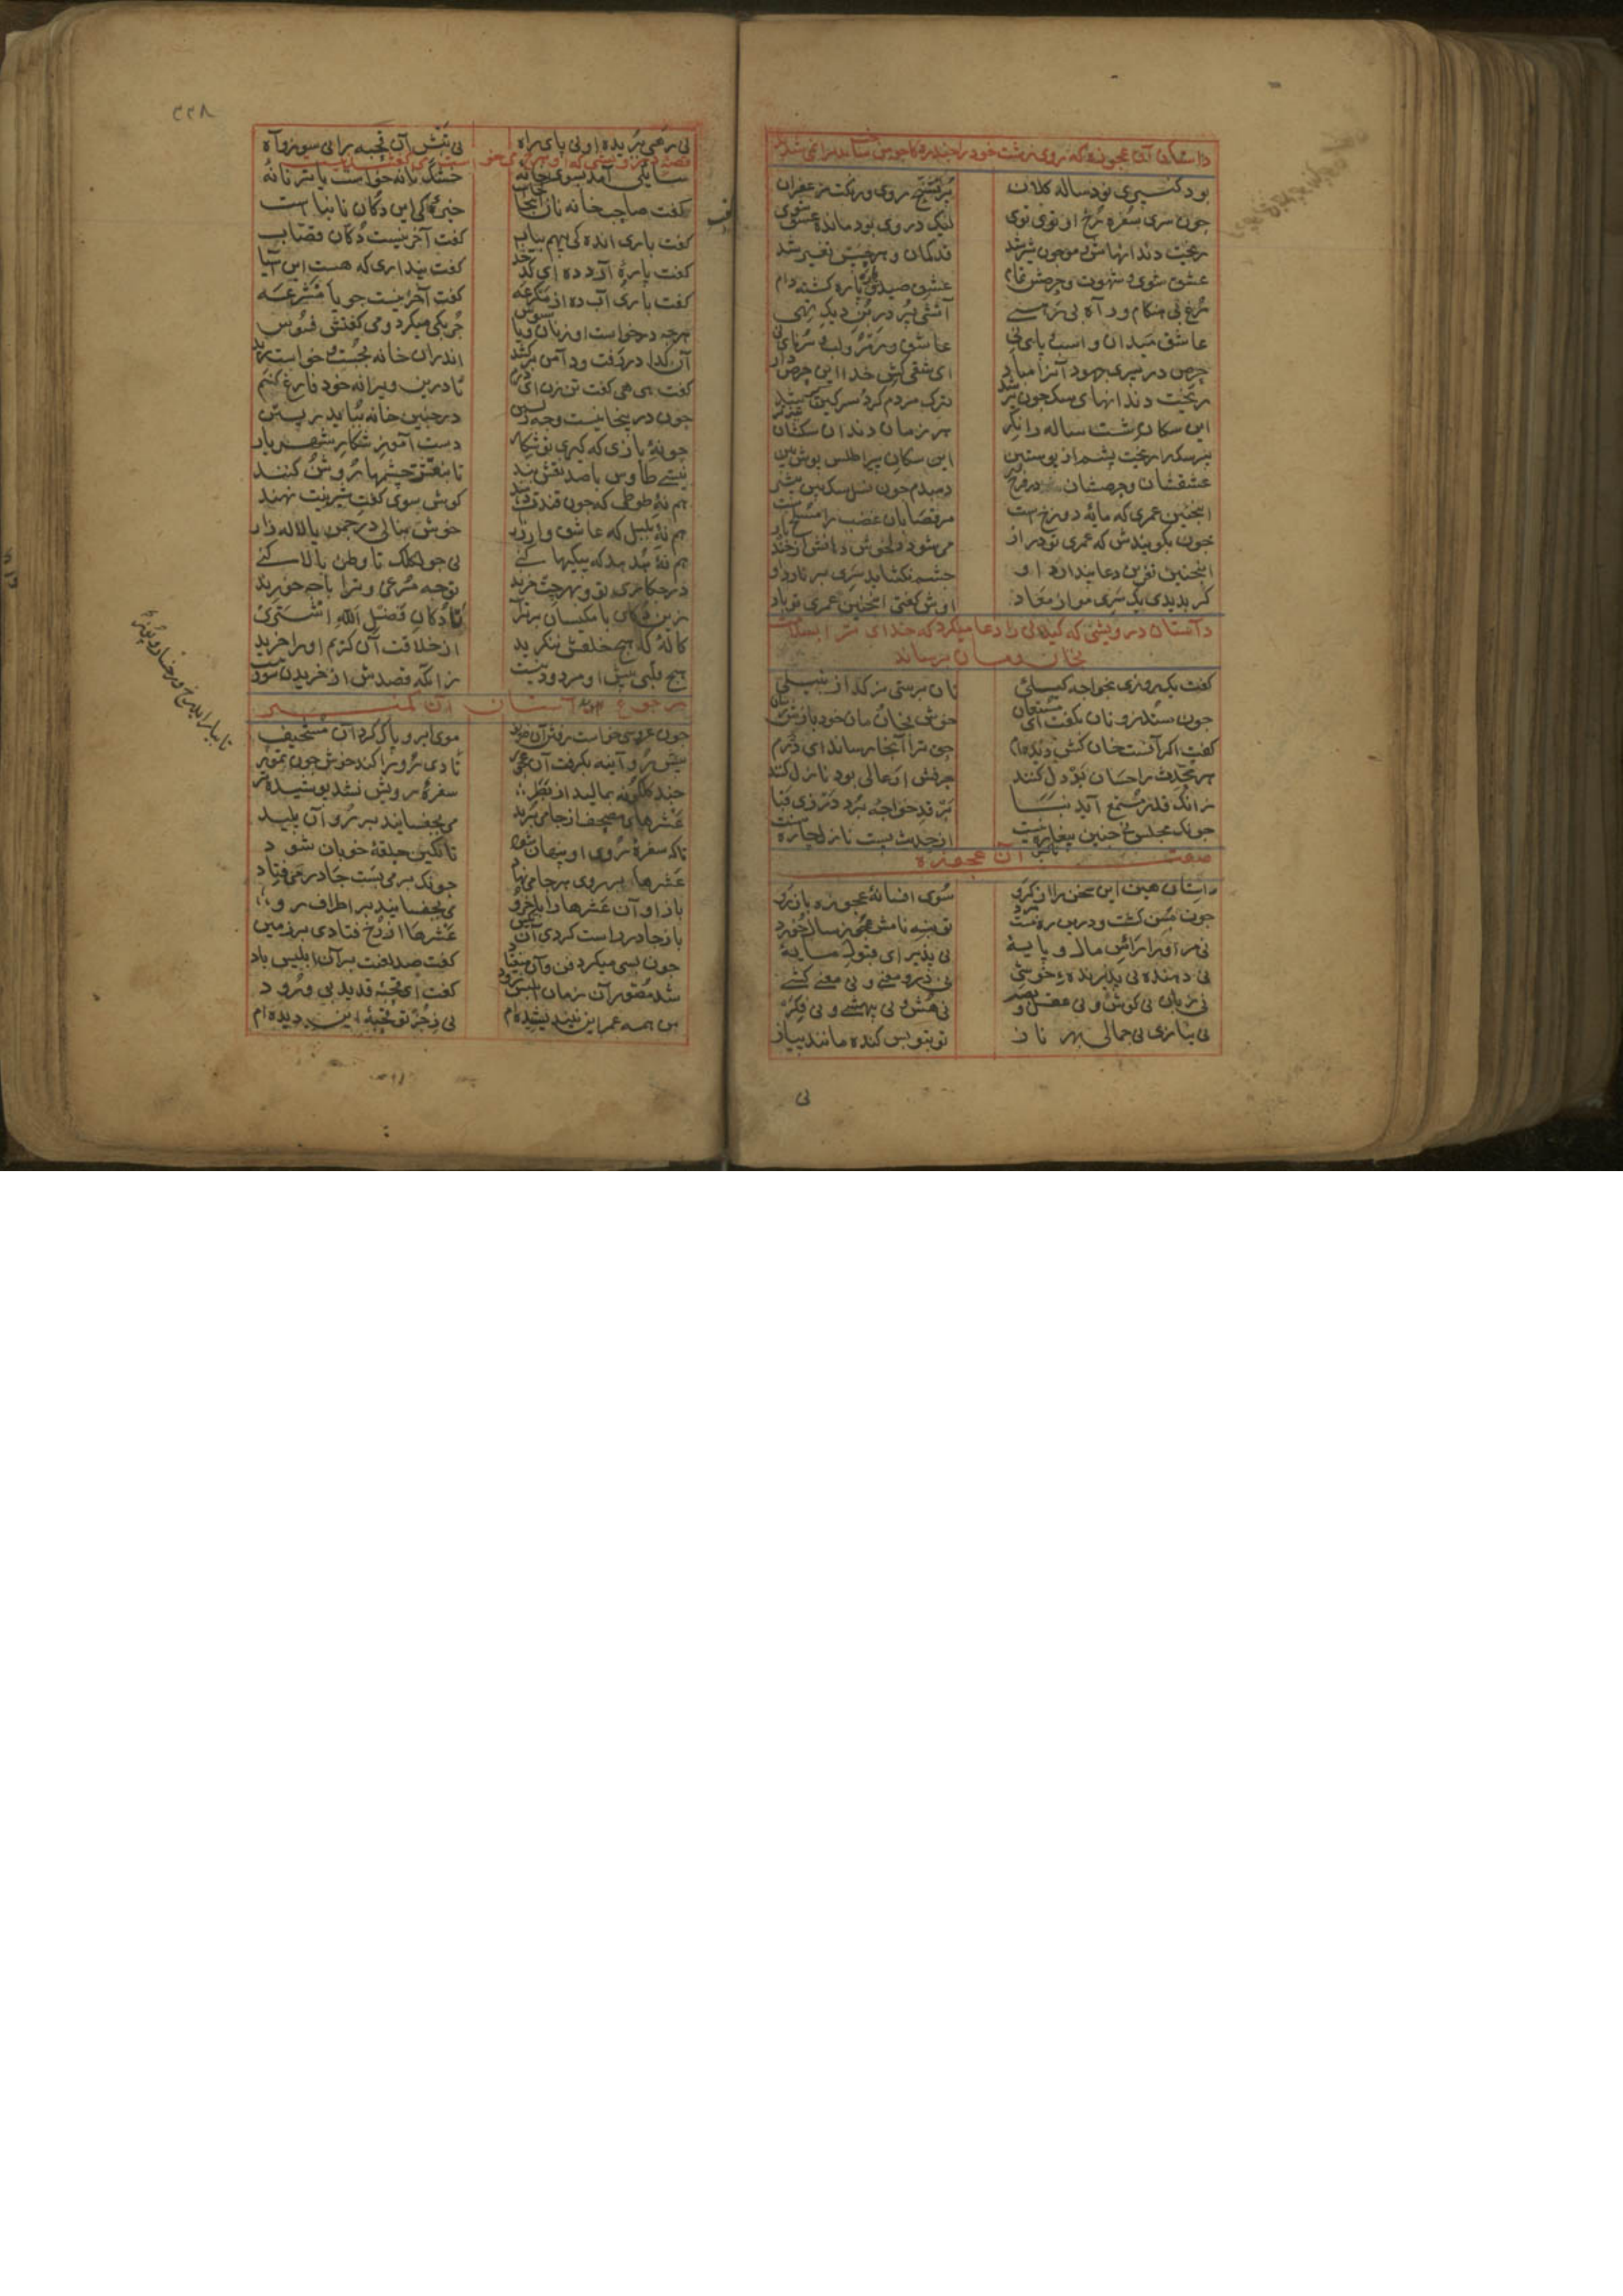 داستان آن عجوزه که روی زشت خود را
بود کمپیری نودساله کلان پر تشنج روی و رنکت زعفران
چون سری سفره رخ او توی توی لیک در وی بود مانده عشق شوی
ریخت دندانهاش و مو چون شیر شد قد کمان و هر حسش تغییر شد
عشق شوی و شهوت و حرصش تمام عشق صید و پاره پاره کشته دام
مرغ بی هنکام و راه بی رهی آتشی پر در بن دیک تهی
عاشق میدان و اسب و پای نی عاشق زمر و لب و سرنای نی
حرص در پیری جهود آنرا مباد ای شقی کش خدا این حرص داد
ریخت دندانهای سک چون پیر شد ترک مردم کرد سرکین کیر شد
این سکان شست ساله را نکر هر زمان دندان سکشان
پیر سک را ریخت پشم از پوستین این سکان پیر اطلس پوش بین
عشقشان و حرصشان در فرج دمبدم چون نسل سک بین بیشتر
اینچنین عمری که مایه دوزخ است مر قصابان غضب را مسلخ است
چون بکویندش که عمری تو دراز می شود دلخوش دهانش از خنده باز
اینچنین نفرین دعا پندارد او چشم نکشاید سری بر نارد او
کر بدیدی یک سر موی از معاد اوش کفتی اینچنین عمری تو باد
داستان درویشی که کیلانی را دعا میکرد که خدای ترا بسلامت
بخان و مان برساند
کفت یک روزی بخواجه کیلیی نان پرستی نر کدا زنبیلی
چون ستد زو نان بکفت ای مستعان خوش بخان و مان خود بازش رسان
کفت اکر آنست خان کش دیده ام حق ترا آنجا رساند ای دژم
هر محدث را خسان بد دل کنند حرفش ار عالی بود نازل کنند
زانک قدر مستمع آید نبا بر قد خواجه برد درزی قبا
چونک مجلس بی چنین پیغاره نیست از حدیث پست نازل چاره نیست
صفت آن عجوزه
داستان هین این سخن را از کرو سوی افسانهٔ عجوزه باز رو
چون مسن کشت و درین ره نیست مرد تو بنه نامش عجوز سالخورد
نی مر او را راس مال و پایهٔ نی پذیرای قبول مایهٔ
نی دهنده نی پذیرنده خوشی نی درو معنی و نی معنی کشی
نی زبان نی کوش و نی عقل و بصر نی هش و نی بیهشی و نی فکر
نی نیاز و نی جمالی بهر ناز تو بتویس کنده مانند پیاز
نی
۲۲۸
نی رهی ببریده او نی پای راه نی تبش آن قحبه را نی سوز و آه
سایلی آمد بسوی خانهٔ خشک نانه خواست یا تر نانهٔ
کفت صاحب خانه نان اینجا کجاست خیرهٔ کی این دکان نانباست
کفت باری اندکی پیهم بیاب کفت آخر نیست دکان قصاب
کفت پارهٔ آرد ده ای کدخدا کفت پنداری که هست این آسیا
کفت باری آب ده از مکرعه کفت آخر نیست جو یا مشرعه
هرچه درخواست او ز نان و یا سبوس چربکی میکرد و می کفتش فسوس
آن کدا در رفت و دامن برکشید اندران خانه بجست و خواست رید
کفت هی هی کفت تن زن ای دژم تا درین ویرانه خود فارغ کنم
چون در اینجا نیست وجه زیستن در چنین خانه بباید ریستن
چون نهٔ بازی که کیری تو شکار دست آموز شکار شهریار
نیستی طاوس با صد نقش بند تا بنقشت چشمها روشن کنند
هم نهٔ طوطی که چون قندت دهند کوش سوی کفت شیرینت نهند
هم نهٔ بلبل که عاشق وار زار خوش بنالی در چمن یا لاله زار
هم نهٔ هدهد که پیکیها کنی نی چو لکلک تا وطن بالا کنی
در چه کاری تو و بهر چت خرند تو چه مرغی و ترا با چه خورند
زین دکان با مکیسان برتر آ تا دکان فضل الله اشتری
کاله که هیچ خلقش ننکرید از خلاقت آن کریم او را خرید
هیچ قلبی پیش او مردود نیست زانکه قصدش از خریدن سود نیست
رجوع بداستان آن کمپیر
چون عروسی خواست رفتن آن موی ابرو پاک کرد آن مستخیف
پیش رو آینه بکرفت آن عجوز تا
چند کلکونه بمالید از بطر سفرهٔ رویش نشد پوشیده تر
عشرهای مصحف از جا می برید می بچفسانید بر رو آن پلید
تاکه سفرهٔ روی او پنهان شود تا نکین حلقهٔ خوبان شود
عشرها بر روی هر جا می نهاد چونک بر می بست چادر می فتاد
باز او آن عشرها را با خدو می بچفسانید بر اطراف رو
باز چادر راست کردی آن تکین عشرها از رخ فتادی بر زمین
چون بسی میکرد فن و آن میفتاد کفت صد لعنت بر آن ابلیس باد
شد مصور آن زمان ابلیس زود کفت ای قحبه قدید بی ورود
من همه عمر این نیندیشیده ام نی ز جز تو قحبهٔ این دیده ام